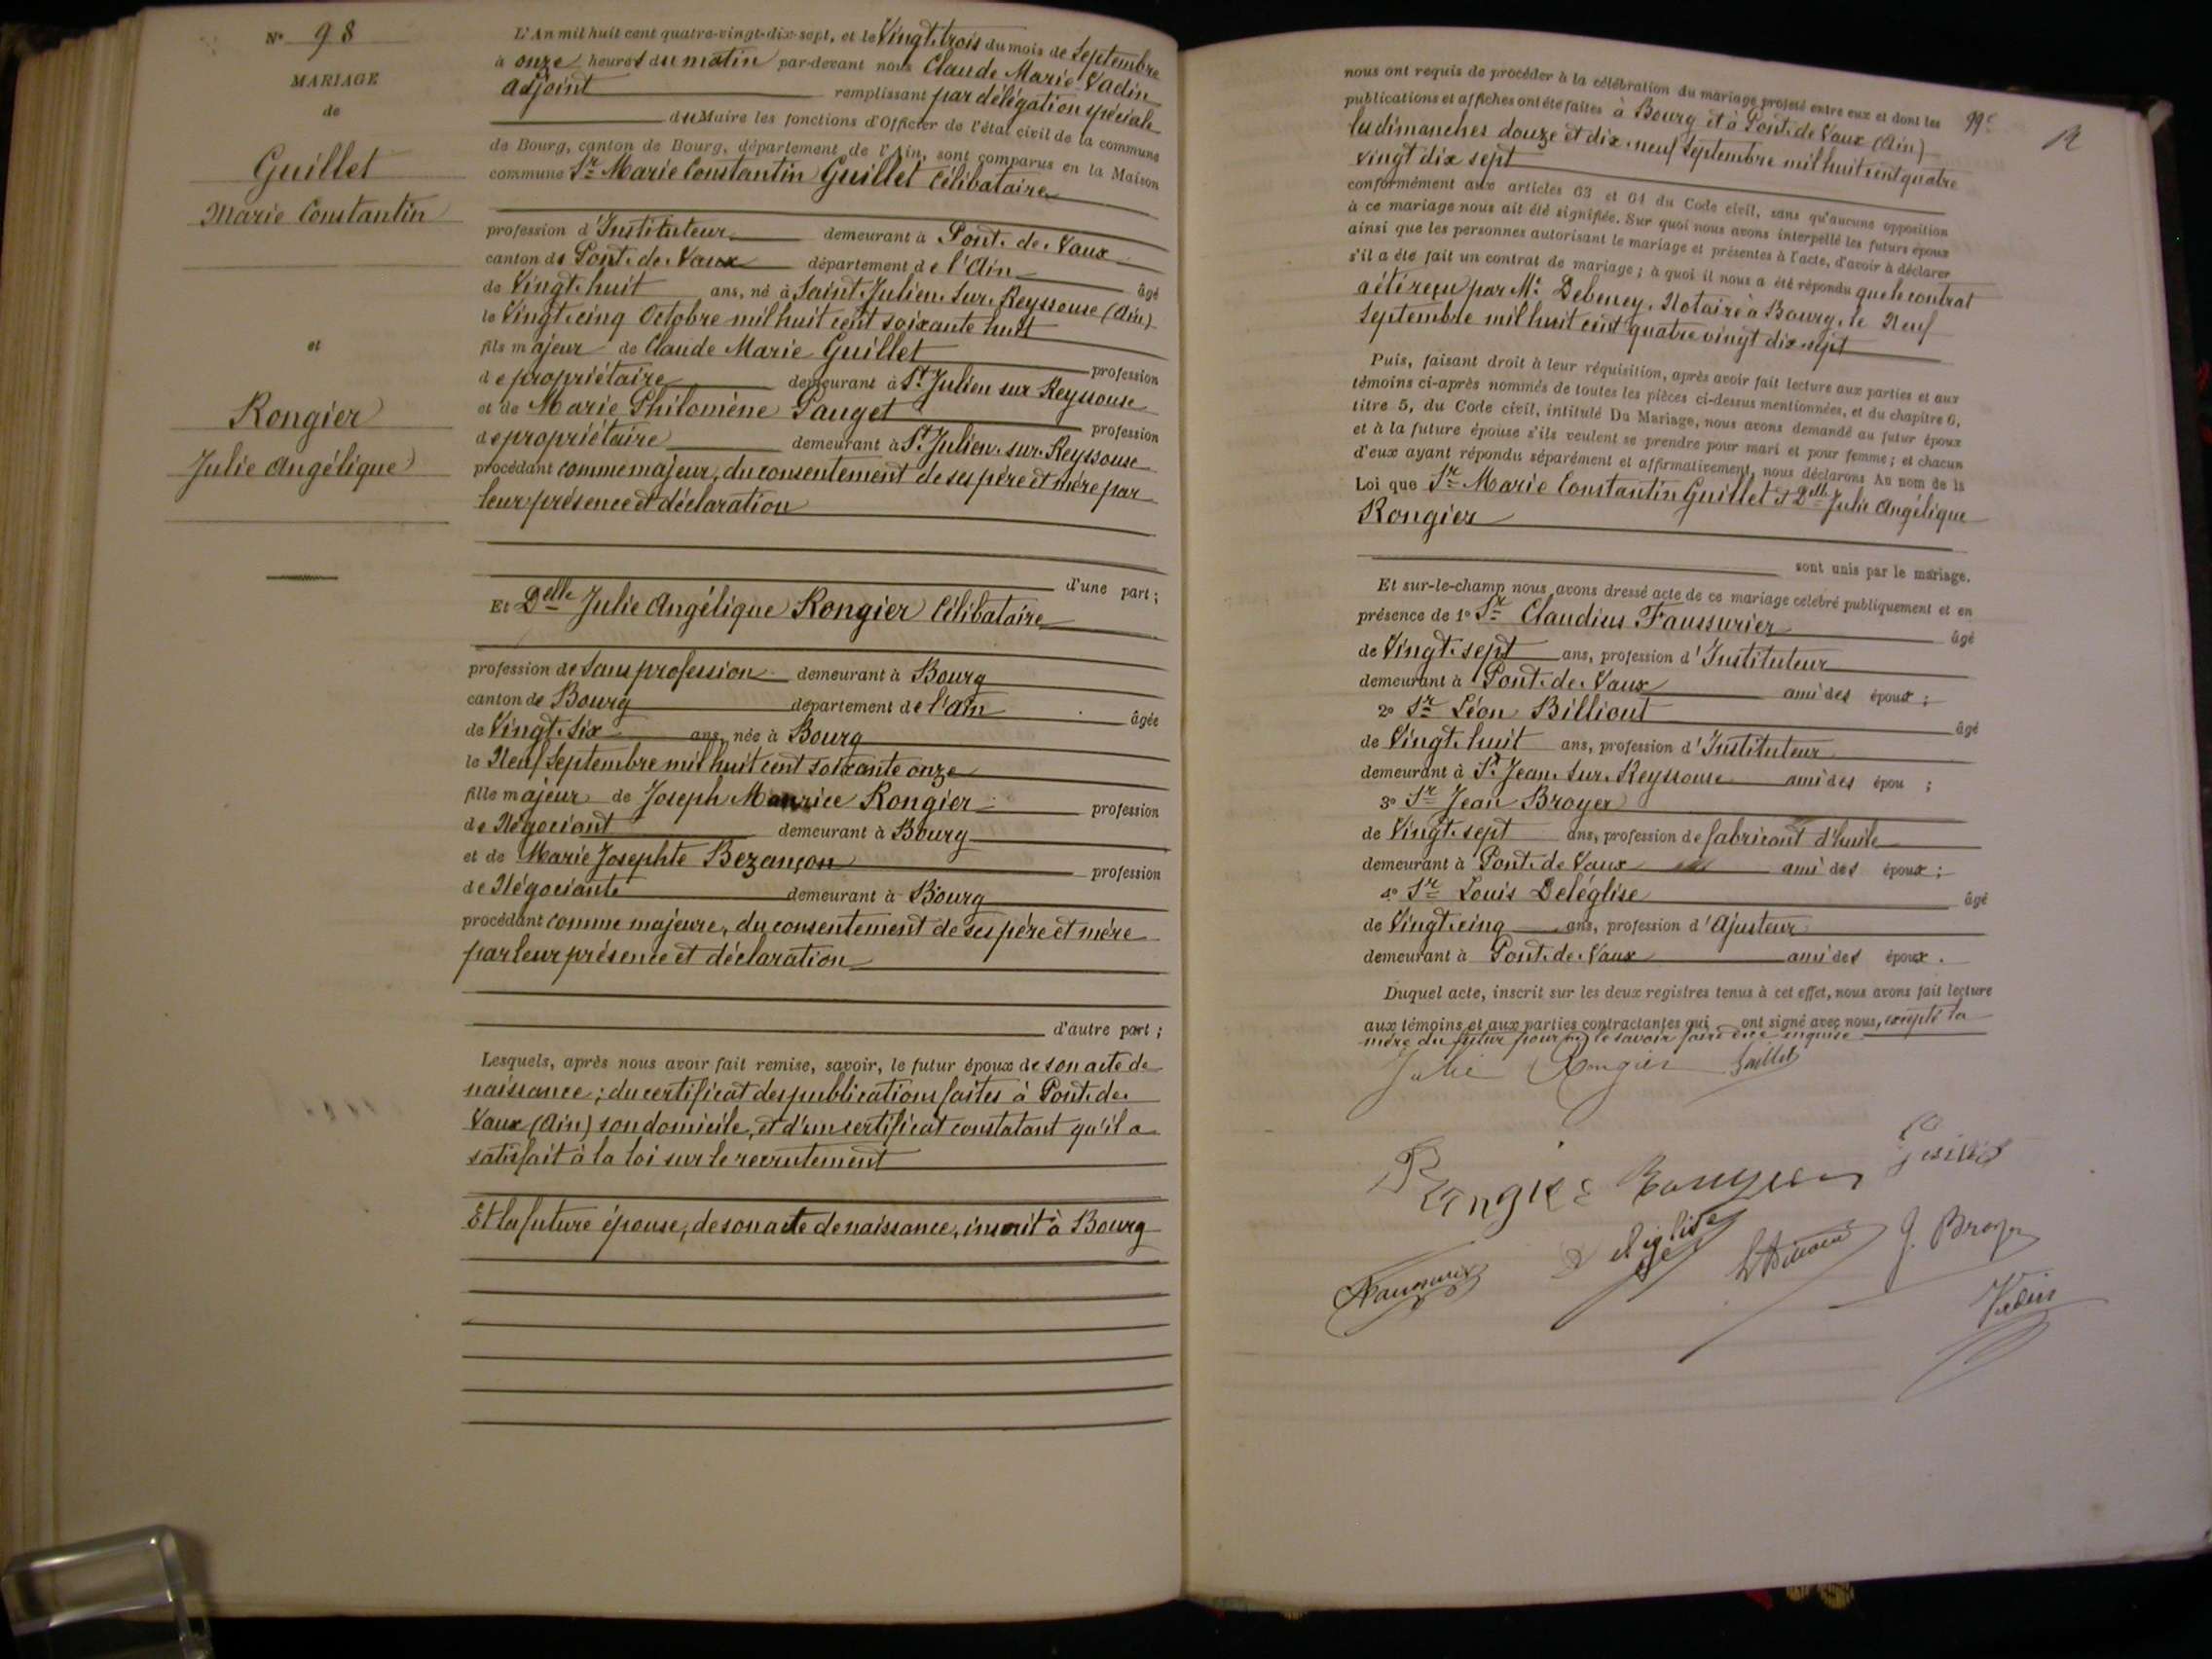 N° 98
MARIAGE
de
Guillet
Marie Constantin
et
Rongier
Julie Angélique
L'An mil huit cent quatre-vingt-dix-sept, et le Vingt-trois du mois de Septembre
à onze heures du matin par-devant nous Claude Marie Vadin
adjoint remplissant par délégation spéciale
du Maire les fonctions d'Officier de l'état civil de la commune
de Bourg, canton de Bourg, département de l'Ain, sont comparus en la Maison
commune Sr Marie Constantin Guillet Célibataire
profession d'Instituteur demeurant à Pont-de-Vaux
canton de Pont-de-Vaux département de l'Ain âgé
de Vingt-huit ans, né à Saint-Julien-sur-Reyssouse (Ain)
le Vingt-cinq Octobre mil huit cent soixante huit
fils majeur de Claude Marie Guillet profession
de propriétaire demeurant à St Julien sur Reyssouse
et de Marie Philomène Pauget profession
de propriétaire demeurant à St Julien-sur-Reyssouse
procédant comme majeur, du consentement de ses père et mère par
leur présence et déclaration
d'une part ;
Et Delle Julie Angélique Rongier Célibataire
profession de Sans profession demeurant à Bourg
canton de Bourg département de l'Ain âgée
de Vingt-six ans, née à Bourg
le Neuf Septembre mil huit cent soixante onze
fille majeur de Joseph Maurice Rongier profession
de Négociant demeurant à Bourg
et de Marie Josephte Bezançon profession
de Négociante demeurant à Bourg
procédant comme majeure, du consentement de ses père et mère
par leur présence et déclaration
d'autre part ;
Lesquels, après nous avoir fait remise, savoir, le futur époux de son acte de
naissance ; du certificat des publications faites à Pont-de-
Vaux (Ain) son domicile, et d'un certificat constatant qu'il a
satisfait à la loi sur le recrutement
Et la future épouse, de son acte de naissance, inscrit à Bourg
99e
nous ont requis de procéder à la célébration du mariage projeté entre eux et dont les
publications et affiches ont été faites à Bourg et à Pont-de-Vaux (Ain)
les dimanches douze et dix-neuf Septembre mil huit cent quatre
vingt dix sept
conformément aux articles 63 et 64 du Code civil, sans qu'aucune opposition
à ce mariage nous ait été signifiée. Sur quoi nous avons interpellé les futurs époux
ainsi que les personnes autorisant le mariage et présentes à l'acte, d'avoir à déclarer
s'il a été fait un contrat de mariage ; à quoi il nous a été répondu que le contrat
a été reçu par Me Debeney, Notaire à Bourg, le Neuf
Septembre mil huit cent quatre vingt dix sept
Puis, faisant droit à leur réquisition, après avoir fait lecture aux parties et aux
témoins ci-après nommés de toutes les pièces ci-dessus mentionnées, et du chapitre 6,
titre 5, du Code civil, intitulé Du Mariage, nous avons demandé au futur époux
et à la future épouse s'ils veulent se prendre pour mari et pour femme ; et chacun
d'eux ayant répondu séparément et affirmativement, nous déclarons Au nom de la
Loi que Sr Marie Constantin Guillet et Delle Julie Angélique
Rongier
sont unis par le mariage.
Et sur-le-champ nous avons dressé acte de ce mariage célébré publiquement et en
présence de 1° Sr Claudius Faussurier âgé
de Vingt-sept ans, profession d'Instituteur
demeurant à Pont-de-Vaux ami des époux ;
2° Sr Léon Billiout âgé
de Vingt-huit ans, profession d'Instituteur
demeurant à St Jean-sur-Reyssouse ami des épou ;
3° Sr Jean Broyer
de Vingt-sept ans, profession de fabricant d'huile
demeurant à Pont-de-Vaux ami des époux ;
4° Sr Louis Deléglise âgé
de Vingt-cinq ans, profession d'Ajusteur
demeurant à Pont-de-Vaux ami des époux.
Duquel acte, inscrit sur les deux registres tenus à cet effet, nous avons fait lecture
aux témoins et aux parties contractantes qui ont signé avec nous, excepté la
mère du futur pour ne le savoir faire de ce enquise
Julie Rongier Guillet
Rongier Guillet
Deléglise J. Broyer
Vadin